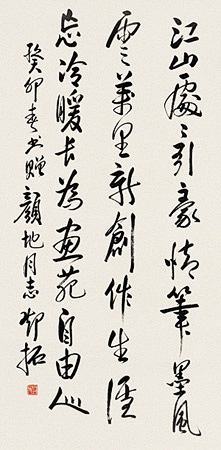 江山處〻引豪情筆墨風
雲萬里新創作生涯
忘冷暖長為畫苑自由人
癸卯春書贈顏地同志鄧拓